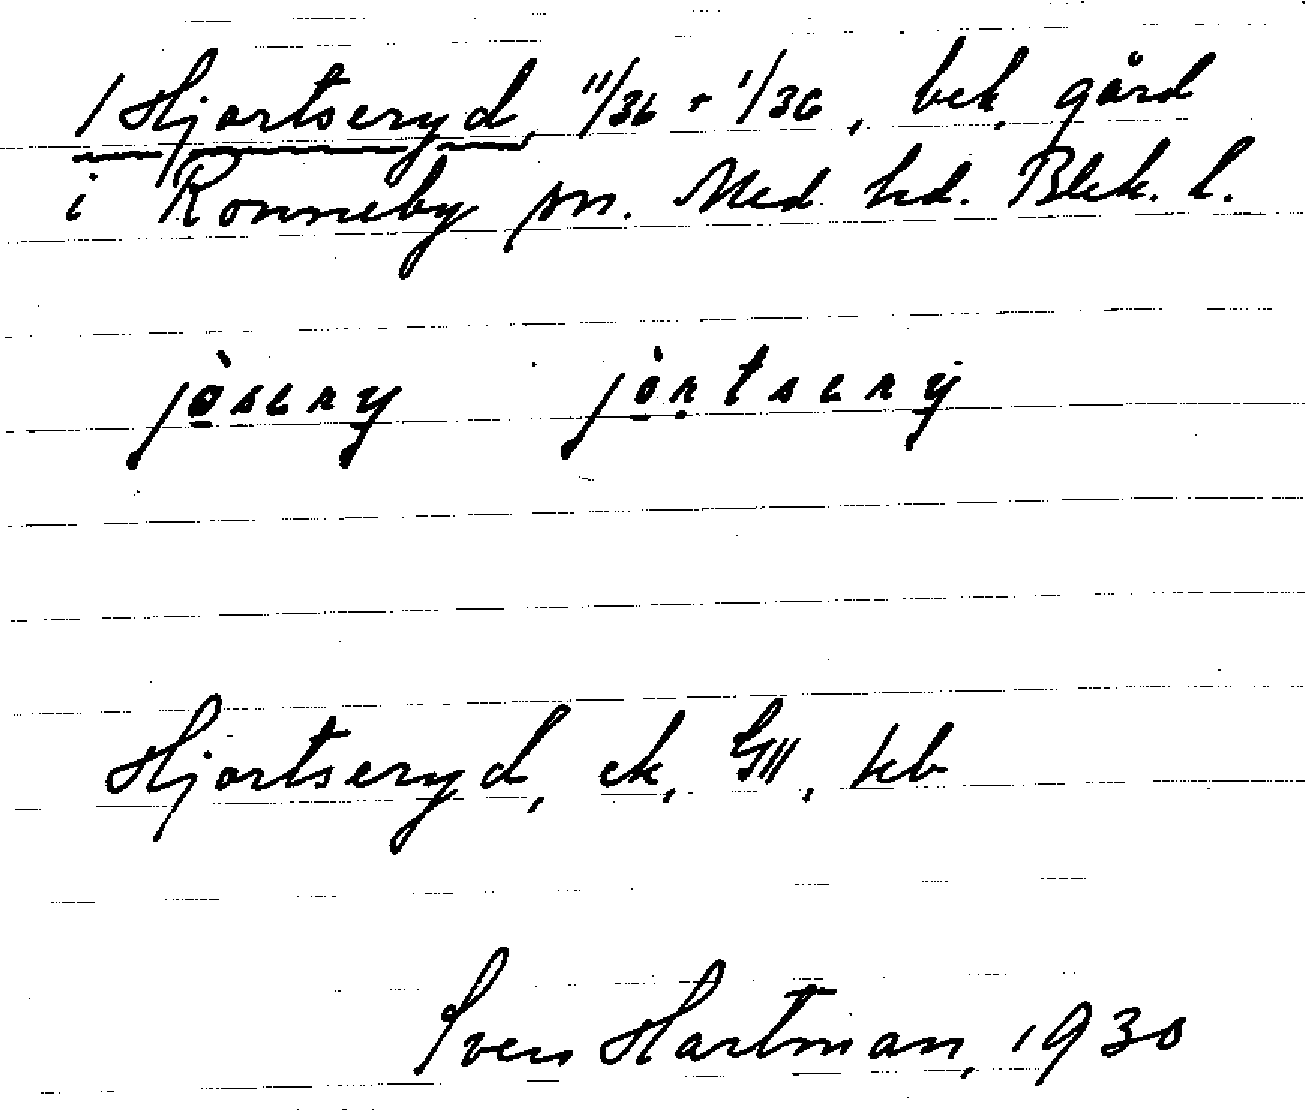 1 Hjortseryd, 11/36 + 1/36, bek. gård
i Ronneby sn. Med. hd. Blek. l.
Hjortseryd, ek, GII, kb
Sven Hartman, 1930